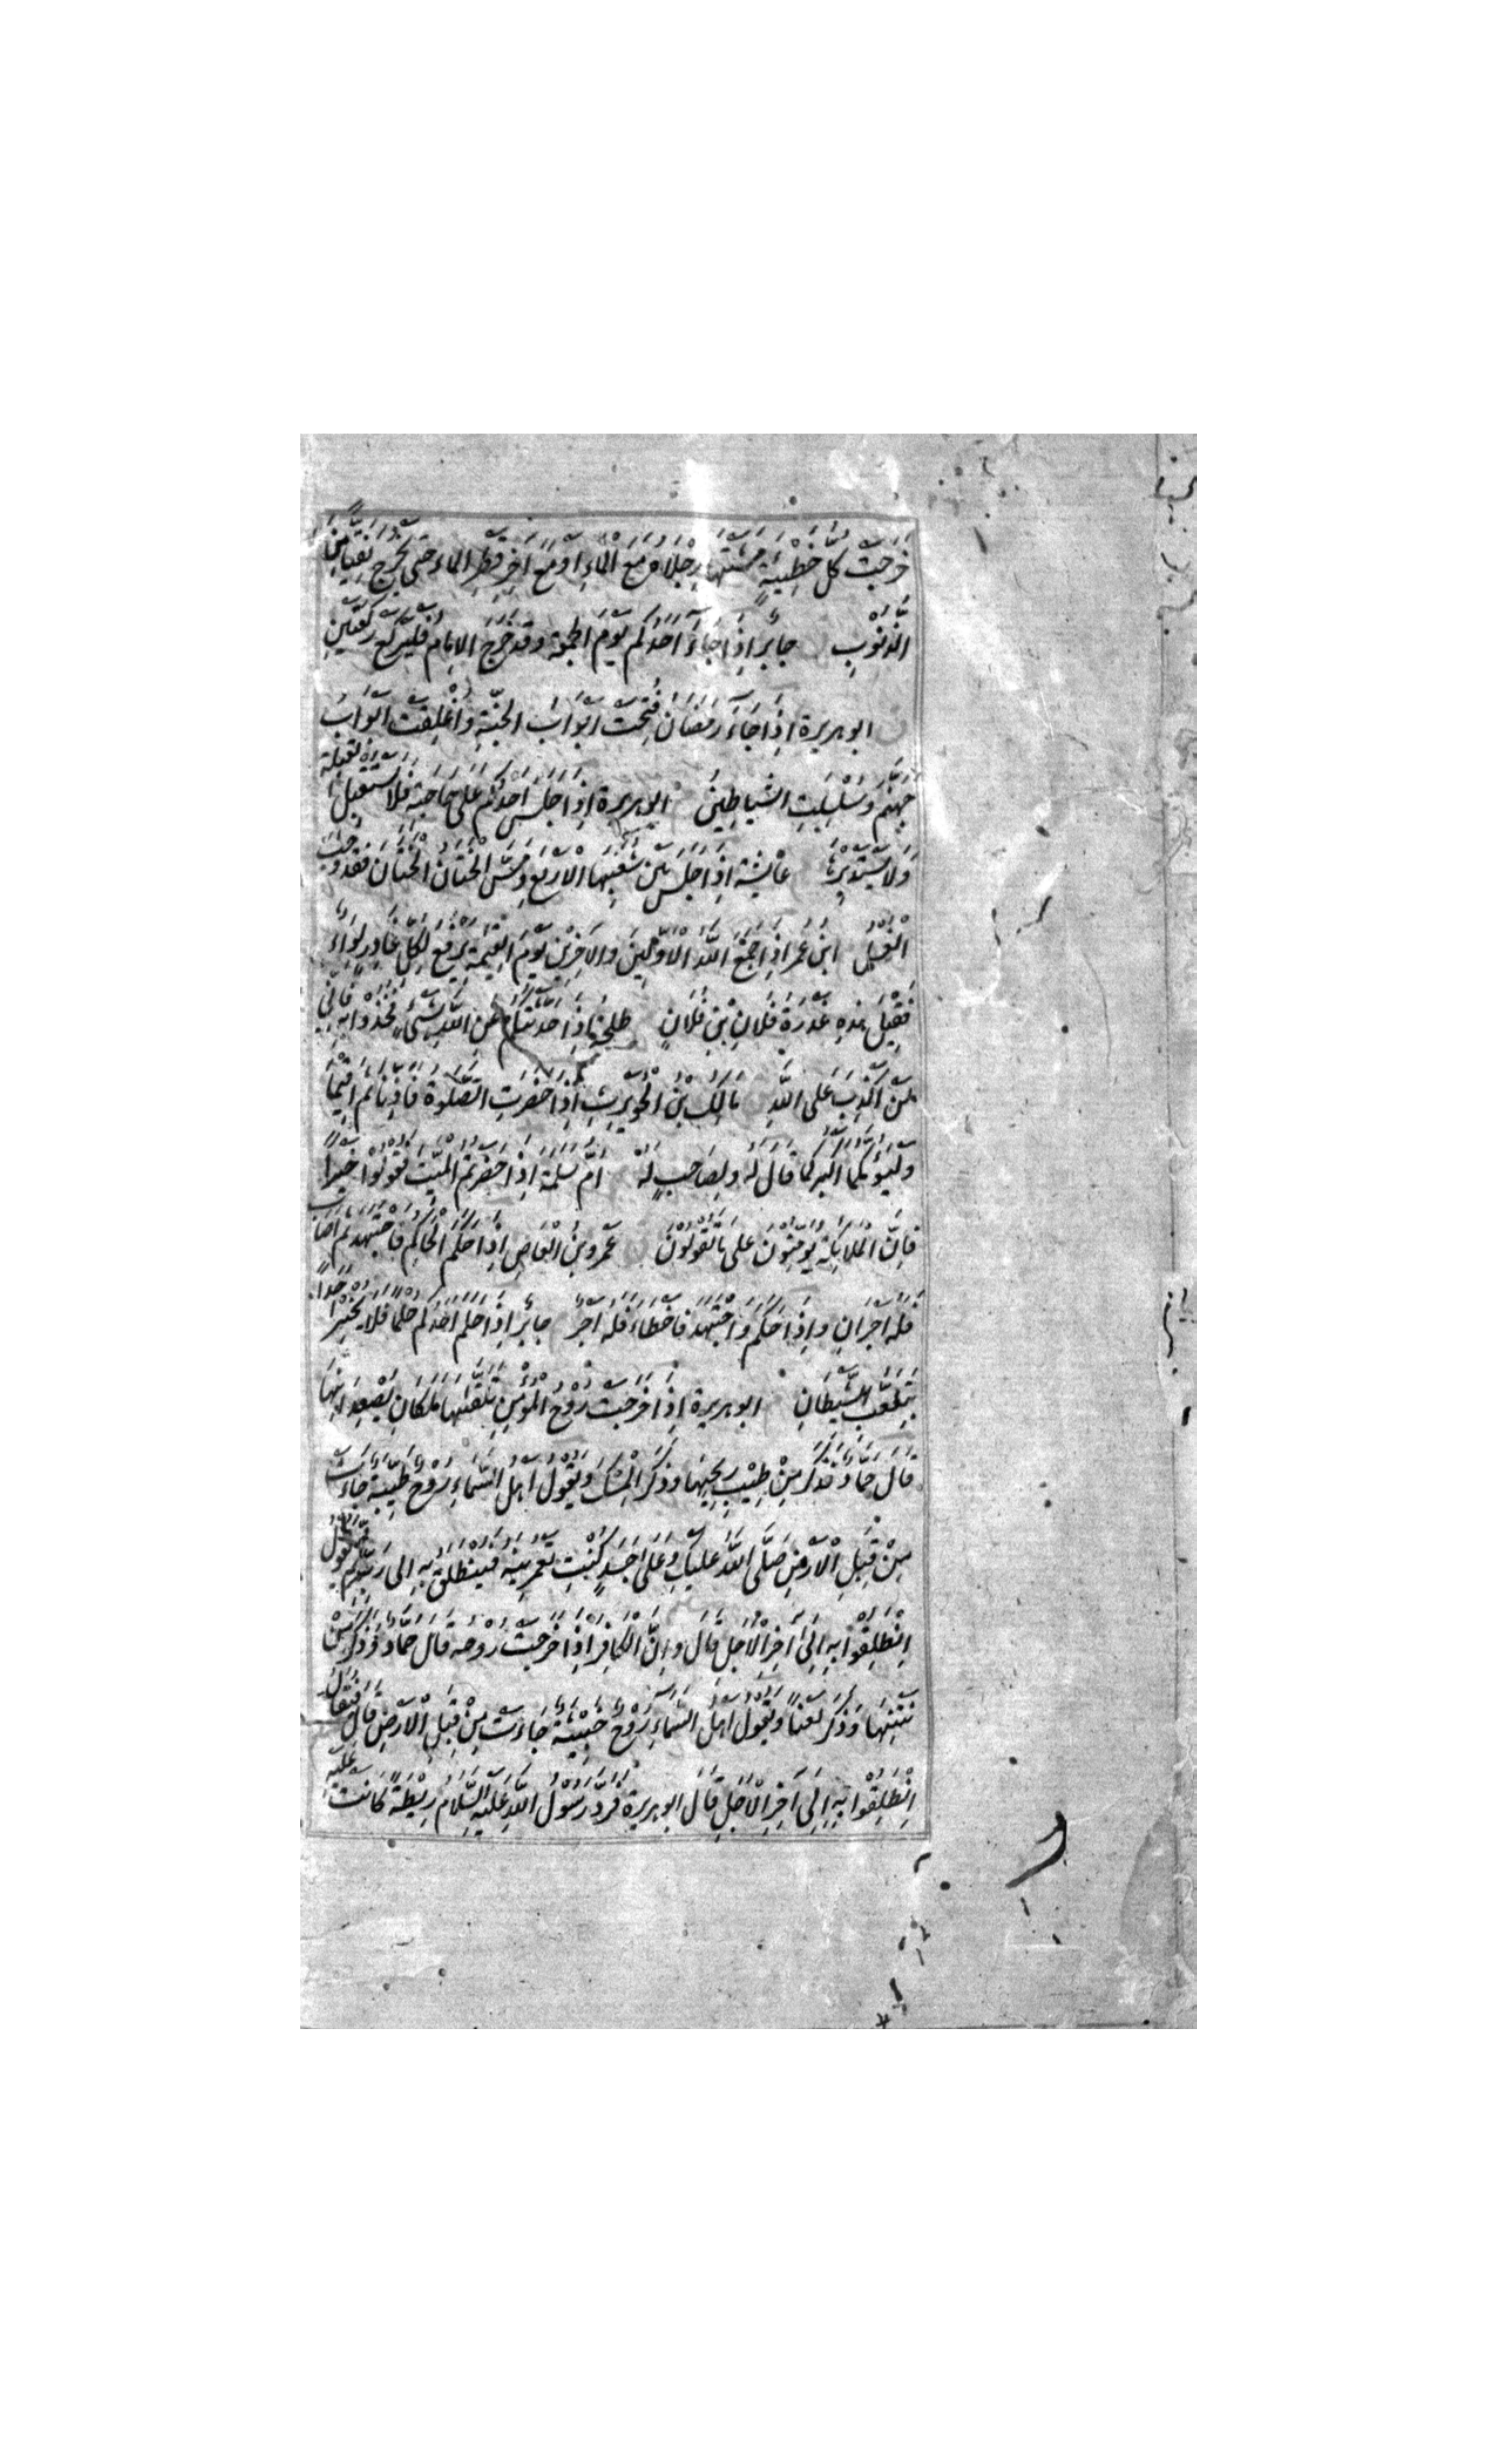 خَرَجَتْ كُلُّ خَطِيئَةٍ مَشَتْهَا رِجْلَاهُ مَعَ الْمَاءِ اَوْ مَعَ آخِرِ قَطْرِ الْمَاءِ حَتّٰى يَخْرُجَ نَقِيًّا مِنَ
الذُّنُوْبِ جابر اِذَا جَآءَ اَحَدُكُمْ يَوْمَ الجمعة وقَدْ خَرَجَ الاِمَامُ فَلْيَرْكَعْ رَكْعَتَيْنِ
ابو هريرة اِذَا جَآءَ رَمَضَانُ فُتِحَتْ اَبْوَابُ الجَنَّةِ وَاُغْلِقَتْ اَبْوَابُ
جَهَنَّمَ وَسُلْسِلَتِ الشَّيَاطِيْنُ ابو هريرة اِذَا جَلَسَ اَحَدُكُمْ عَلٰى حَاجَةٍ فَلَا يَسْتَقْبِلِ القبلة
وَلَا يَسْتَدْبِرْهَا عائشة اِذَا جَلَسَ بَيْنَ شُعَبِهَا الْاَرْبَعِ وَمَسَّ الْخِتَانُ الْخِتَانَ فَقَدْ وَجَبَ
الْغُسْلُ ابن عمر اِذَا جَمَعَ اللّٰهُ الْاَوَّلِينَ وَالْاٰخِرِيْنَ يَوْمَ الْقِيٰمَةِ يُرْفَعُ لِكُلِّ غَادِرٍ لِوَاءٌ
فَقِيْلَ هٰذِهِ غَدْرَةُ فُلَانِ بْنِ فُلَانٍ طلحة اِذَا حَدَّثْتُكُمْ عَنِ اللّٰهِ بِشَيْءٍ فَخُذُوْا بِهِ فَاِنِّي
لَنْ اَكْذِبَ عَلَى اللّٰهِ مالك بْنُ الْحُوَيْرِثِ اِذَا حَضَرَتِ الصَّلٰوةُ فَاَذِّنَا ثُمَّ اَقِيْمَا
وَلْيَؤُمَّكُمَا اَكْبَرُكُمَا قَالَ لَهُ ولِصَاحِبٍ لَهُ اُمُّ سَلَمَةَ اِذَا حَضَرْتُمُ الْمَيِّتَ فَقُوْلُوْا خَيْرًا
فَاِنَّ الْمَلَائِكَةَ يُؤَمِّنُوْنَ عَلٰى مَا تَقُوْلُوْنَ عمرو بن العاص اِذَا حَكَمَ الْحَاكِمُ فَاجْتَهَدَ ثُمَّ اَصَابَ
فَلَهُ اَجْرَانِ وَاِذَا حَكَمَ وَاجْتَهَدَ فَاَخْطَاَ فَلَهُ اَجْرٌ جابر اِذَا حَلَمَ اَحَدُكُمْ حُلْمًا فَلَا يُخْبِرْ اَحَدًا
بِتَلَعُّبِ الشَّيْطَانِ ابو هريرة اِذَا خَرَجَتْ رُوْحُ الْمُؤْمِنِ تَلَقَّاهَا مَلَكَانِ يُصْعِدَانِهَا
قَالَ حَمَّادٌ فَذَكَرَ مِنْ طِيْبِ رِيْحِهَا وَذَكَرَ الْمِسْكَ وَيَقُوْلُ اَهْلُ السَّمَاءِ رُوْحٌ طَيِّبَةٌ جَاءَتْ
مِنْ قِبَلِ الْاَرْضِ صَلَّى اللّٰهُ عَلَيْكِ وَعَلٰى جَسَدٍ كُنْتِ تَعْمُرِيْنَهُ فَيُنْطَلَقُ بِهِ اِلٰى رَبِّهِ ثُمَّ يَقُوْلُ
اِنْطَلِقُوْا بِهِ اِلٰى آخِرِ الْاَجَلِ قَالَ وَاِنَّ الْكَافِرَ اِذَا خَرَجَتْ رُوْحُهُ قَالَ حَمَّادٌ وَذَكَرَ مِنْ
نَتْنِهَا وَذَكَرَ لَعْنًا وَيَقُوْلُ اَهْلُ السَّمَاءِ رُوْحٌ خَبِيْثَةٌ جَاءَتْ مِنْ قِبَلِ الْاَرْضِ قَالَ فَيُقَالُ
اِنْطَلِقُوْا بِهِ اِلٰى آخِرِ الْاَجَلِ قَالَ ابو هريرة فَرَدَّ رَسُوْلُ اللّٰهِ عَلَيْهِ السَّلَامُ رَيْطَةً كَانَتْ عَلَيْهِ